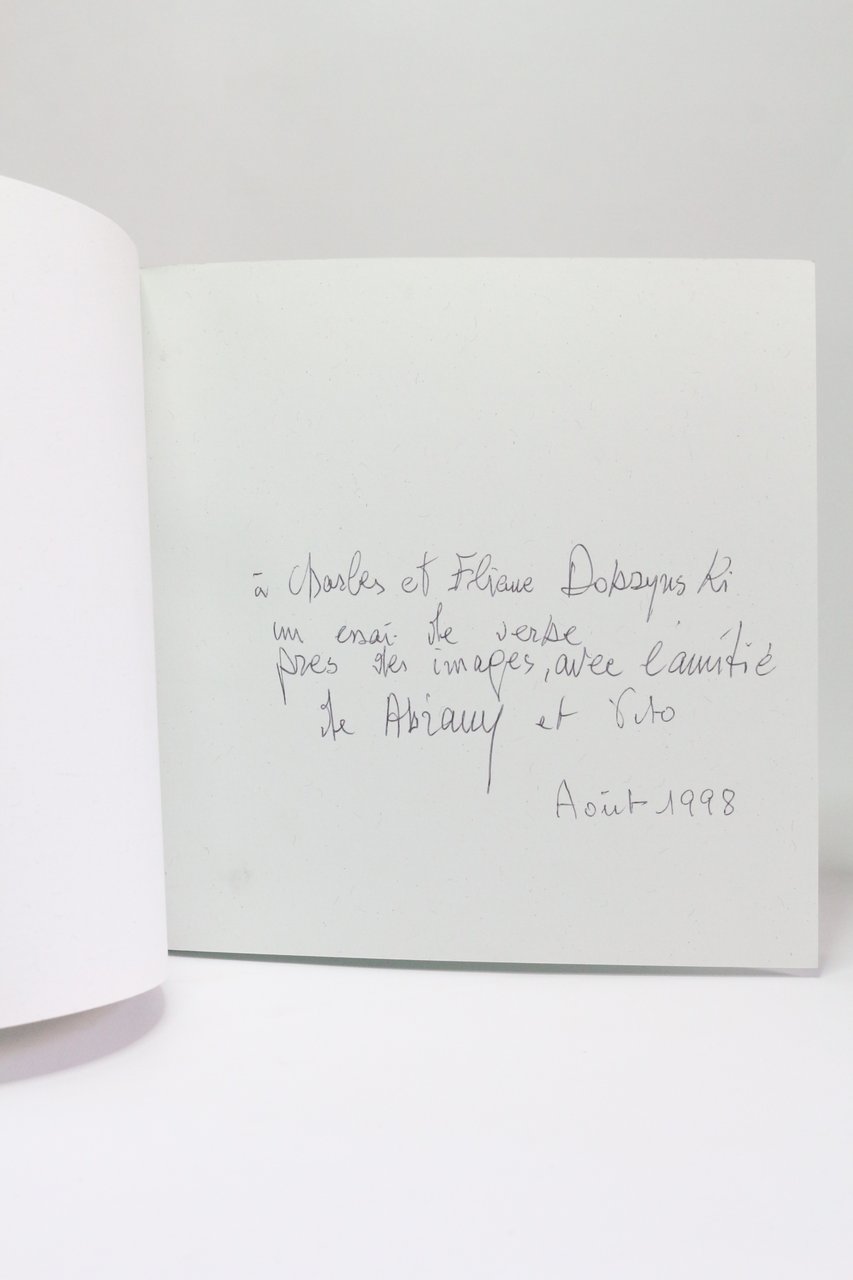 à Charles et Eliane Dobzynski
un essai de verbe
près des images, avec l'amitié
de et Vito
Août 1998